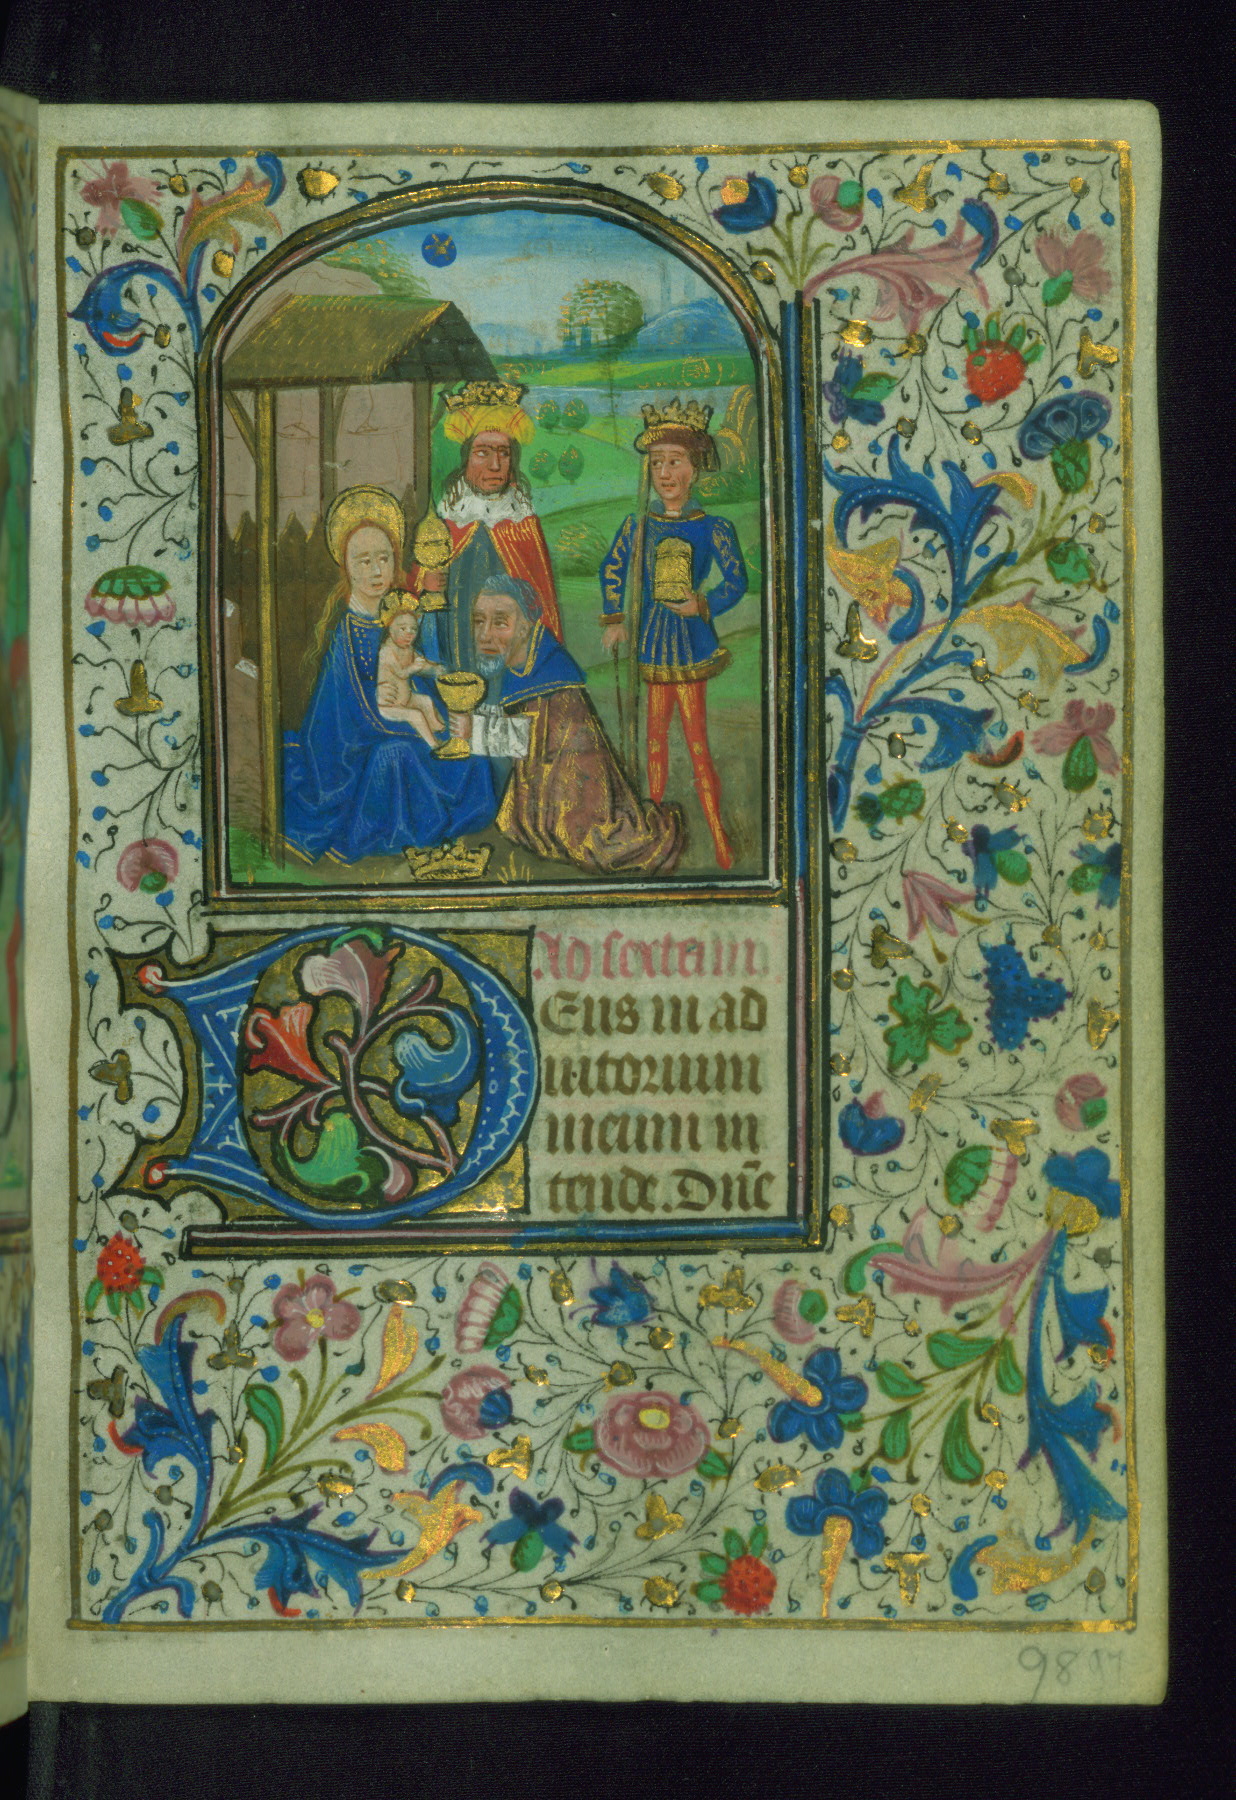 Ad sextam
Eus in ad
iutorium
meum in
tende. Dn̄e
98 97